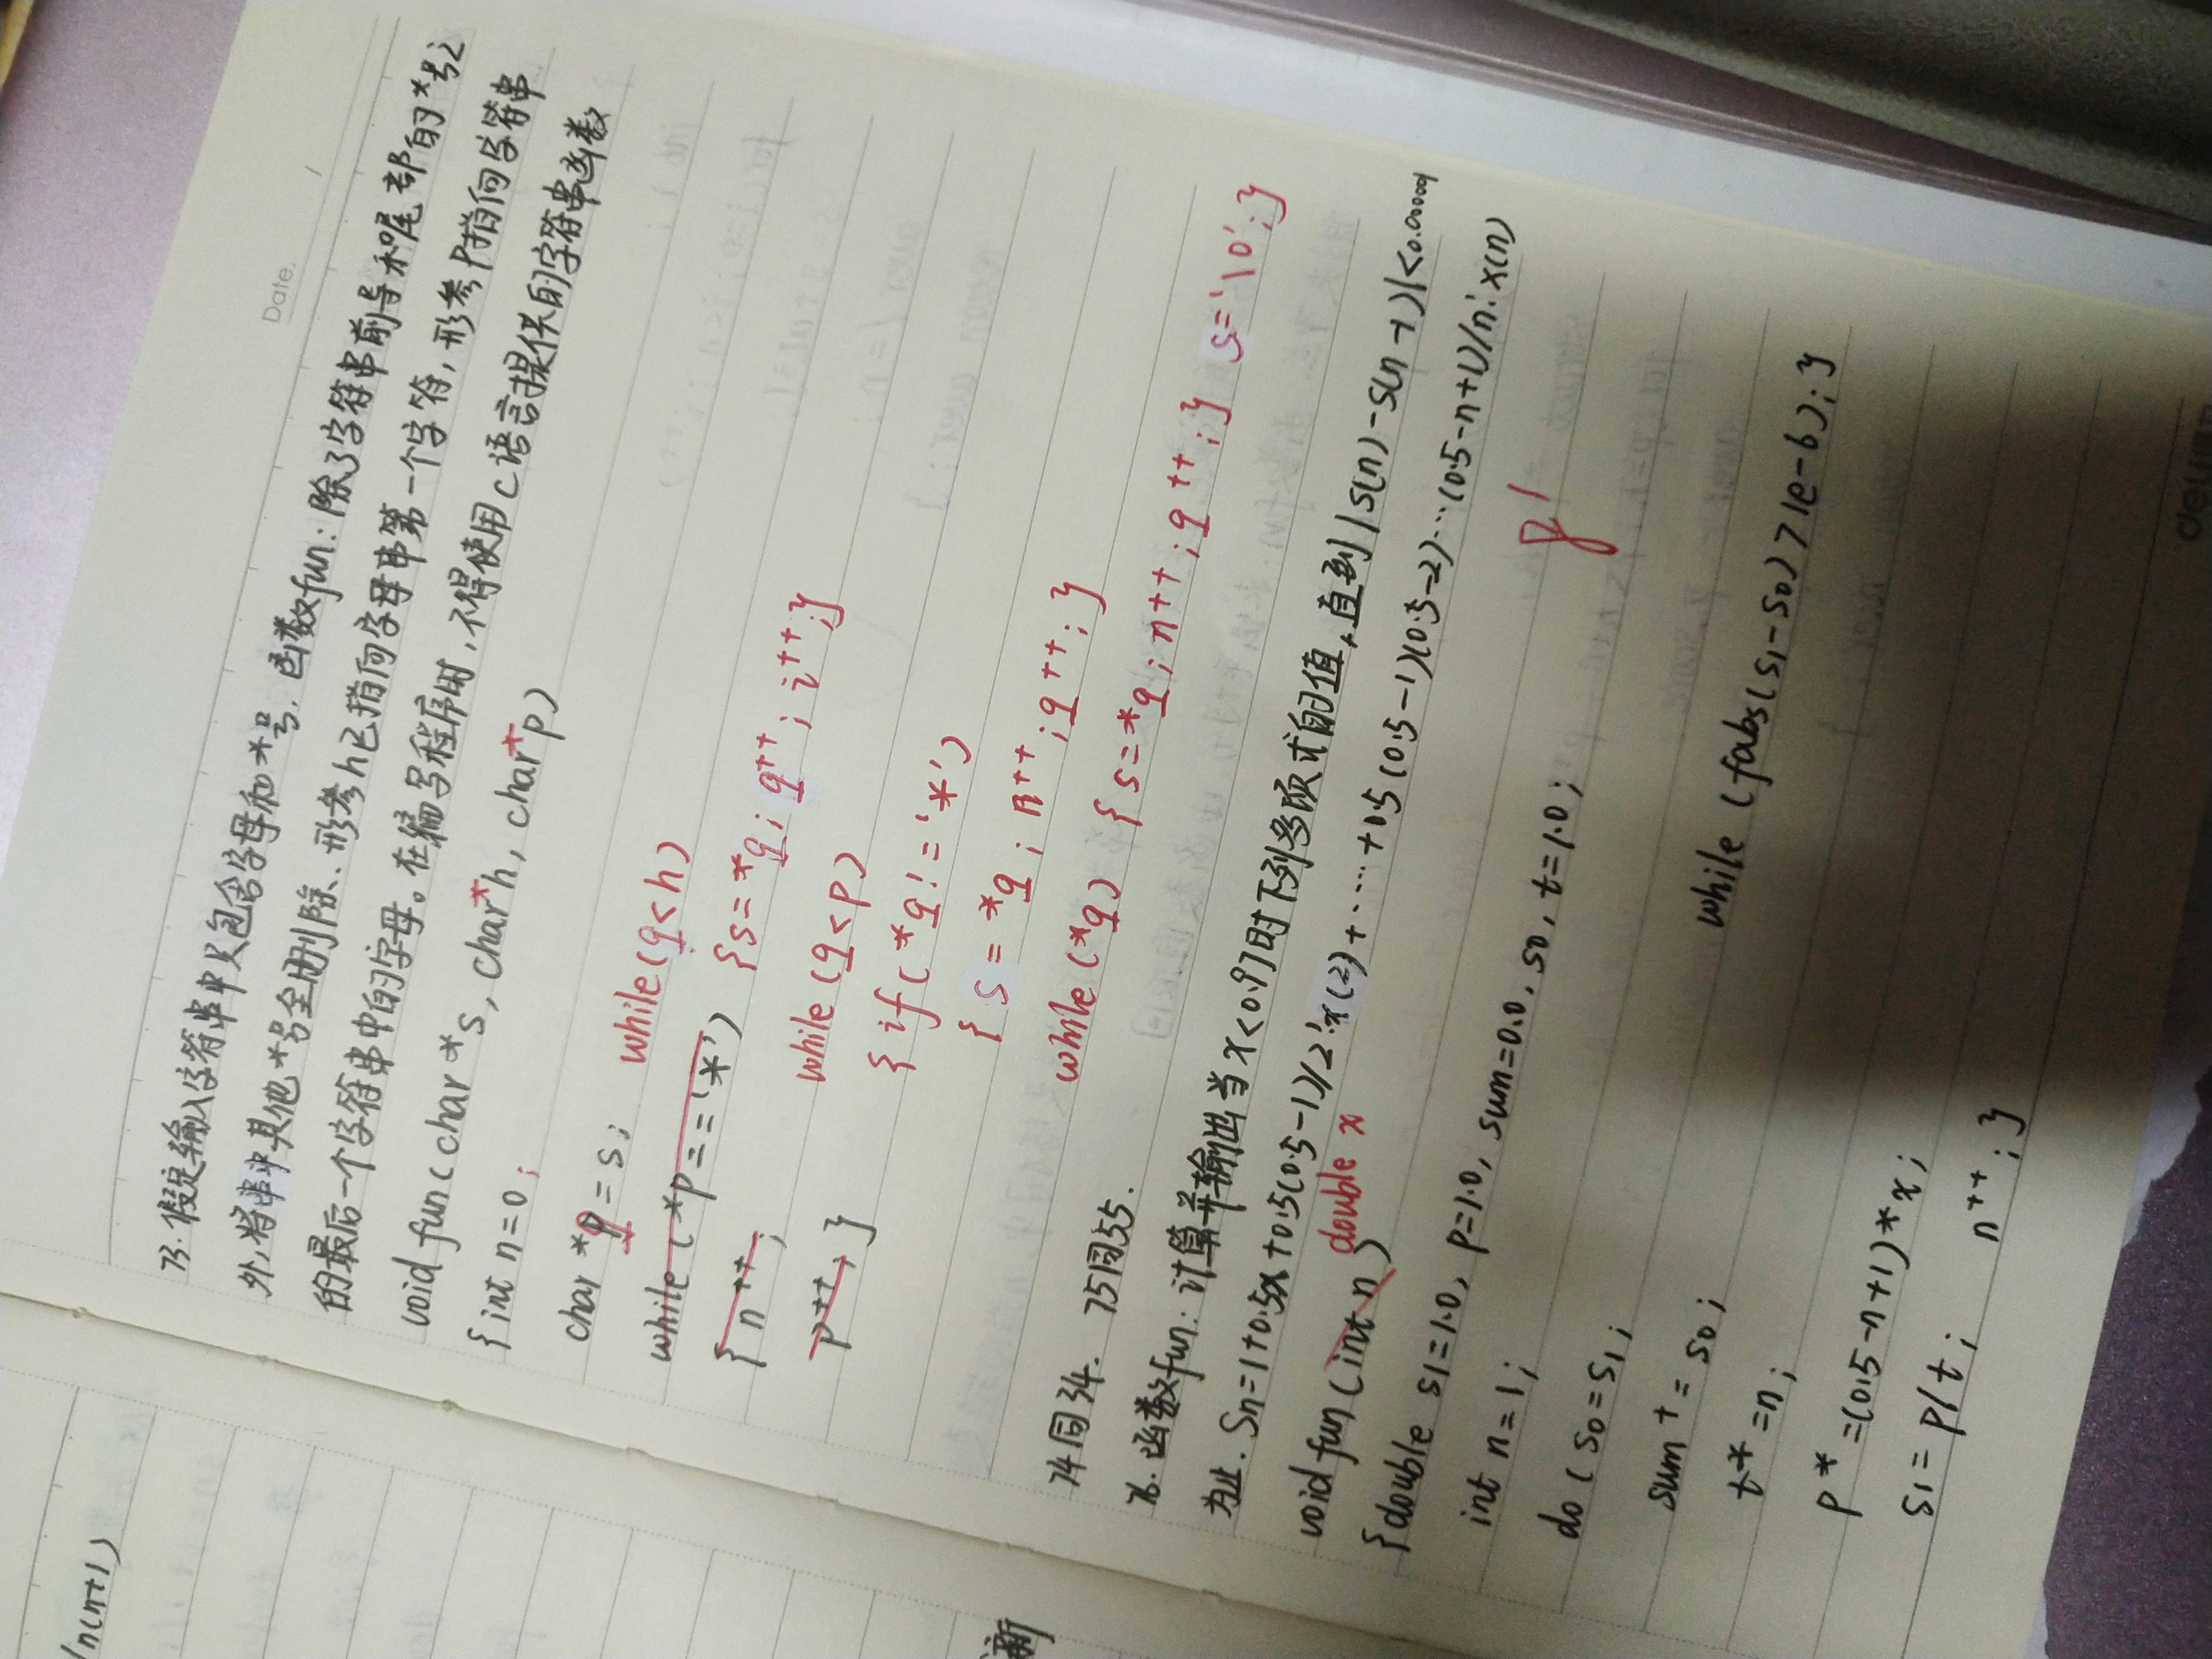 Date.
73. 假定输入字符串中只包含字母和*号. 函数fun: 除了字符串前导和尾部的*号之
外, 将串中其他*号全删除. 形参h已指向字母串第一个字符, 形参P指向字符串
的最后一个字符串中的字母。在编写程序时, 不得使用C语言提供的字符串函数
void fun(char *s, char*h, char*p)
{int n=0;
char *q=s; while(q<h)
while(*p=='*') {s=*q; q++; i++;}
{n++; while(q<p)
p++;} {if(*q!='*')
{s=*q; n++; q++;}
while(*q) {s=*q; n++; q++;} s='\0';}
74同34. 75同55.
76. 函数fun: 计算并输出当x<0.97时下列多项式的值, 直到|S(n)-S(n-1)|<0.000001
为止. Sn=1+0.5x+0.5(0.5-1)/2!x(2)+……+0.5(0.5-1)(0.5-2)…(0.5-n+1)/n!x(n)
void fun(int n) double x
{double s1=1.0, p=1.0, sum=0.0, s0, t=1.0;
int n=1;
do(s0=s1;
sum+=s0;
t*=n; while(fabs(s1-s0)>1e-6);}
p*=(0.5-n+1)*x;
s1=p/t; n++;}
/n(n+1)
新
deli